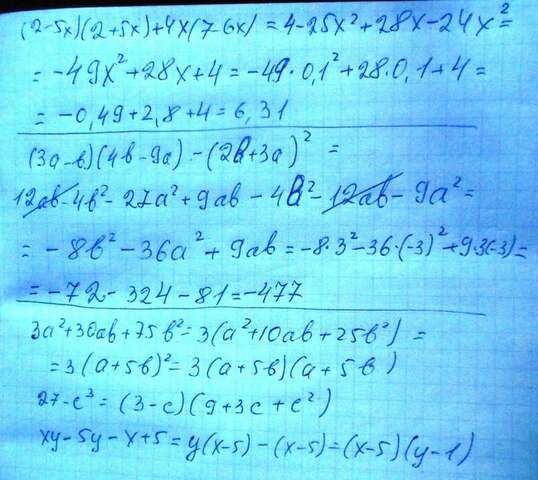 (2-5x)(2+5x)+4x(7-6x) = 4-25x²+28x-24x² =
= -49x²+28x+4 = -49·0,1²+28·0,1+4 =
= -0,49+2,8+4 = 6,31
(3a-b)(4b-9a) - (2b+3a)² =
12ab-4b²-27a²+9ab-4b²-12ab-9a² =
= -8b²-36a²+9ab = -8·3²-36·(-3)²+9·3(-3) =
= -72-324-81 = -477
3a²+30ab+75b² = 3(a²+10ab+25b²) =
= 3(a+5b)² = 3(a+5b)(a+5b)
27-c³ = (3-c)(9+3c+c²)
xy-5y-x+5 = y(x-5)-(x-5) = (x-5)(y-1)